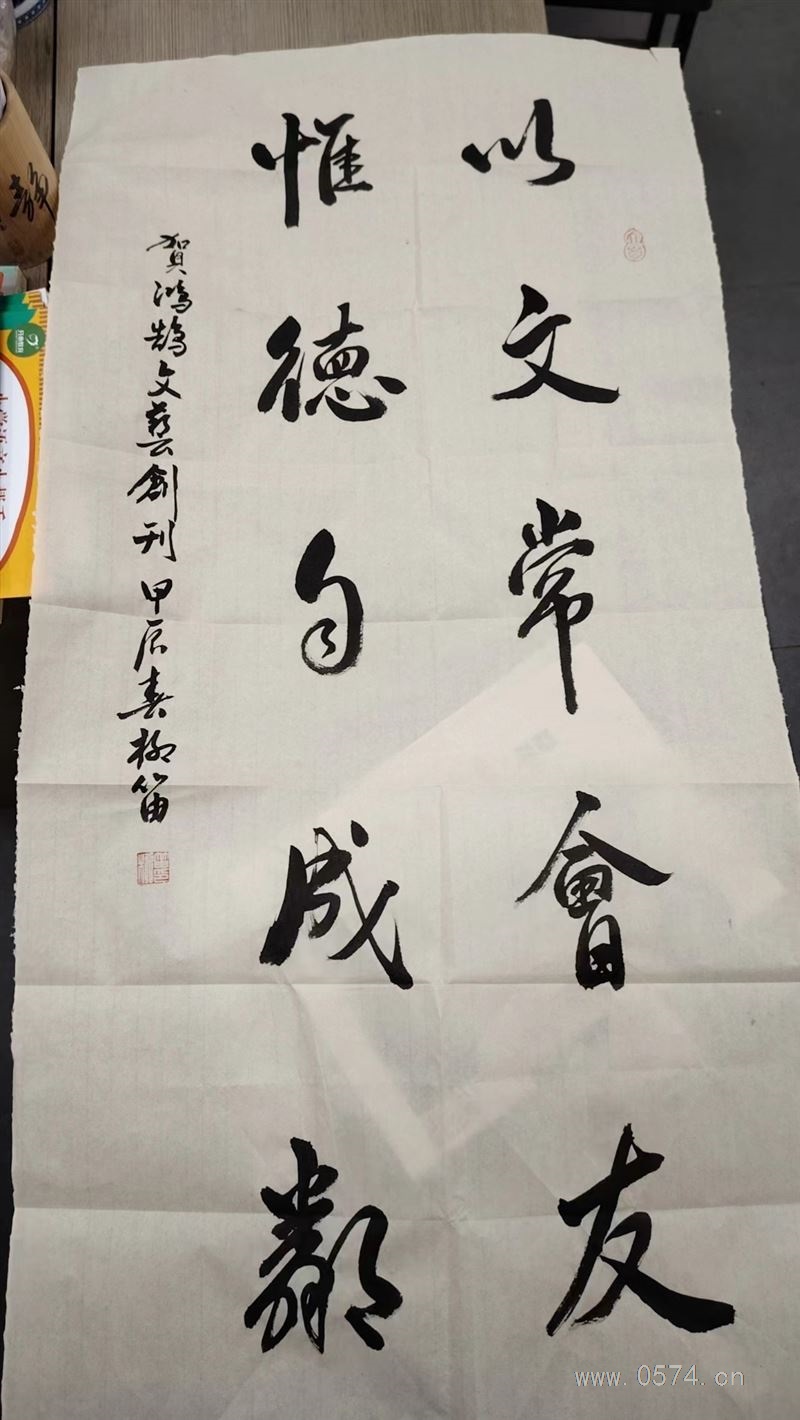 以文常會友
惟德自成鄰
賀鴻鵠文藝創刊 甲辰春柳笛
www.0574.cn